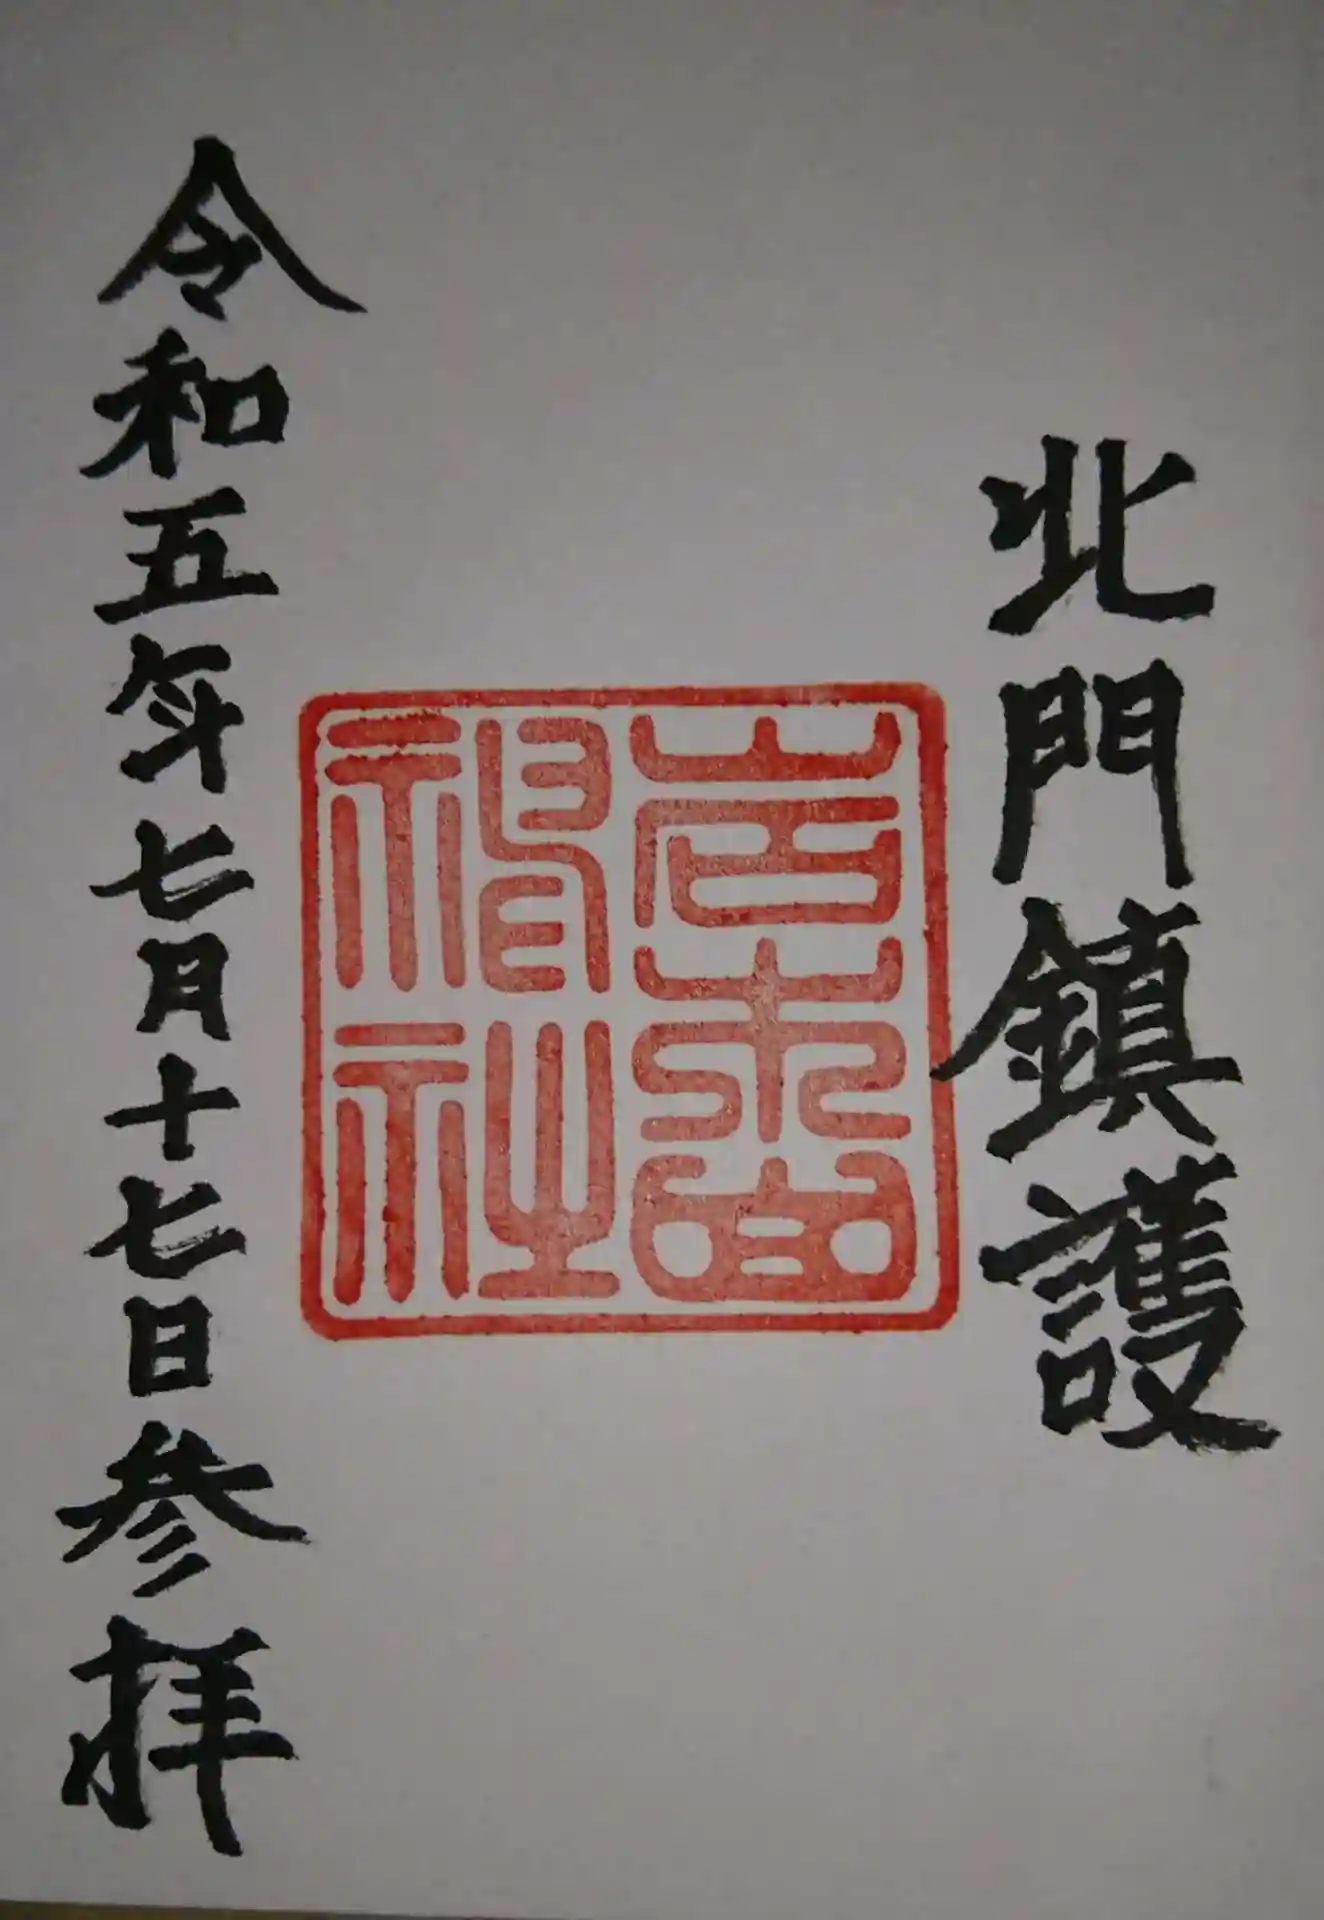 北門鎮護
岩木山
神社
令和五年七月十七日参拝